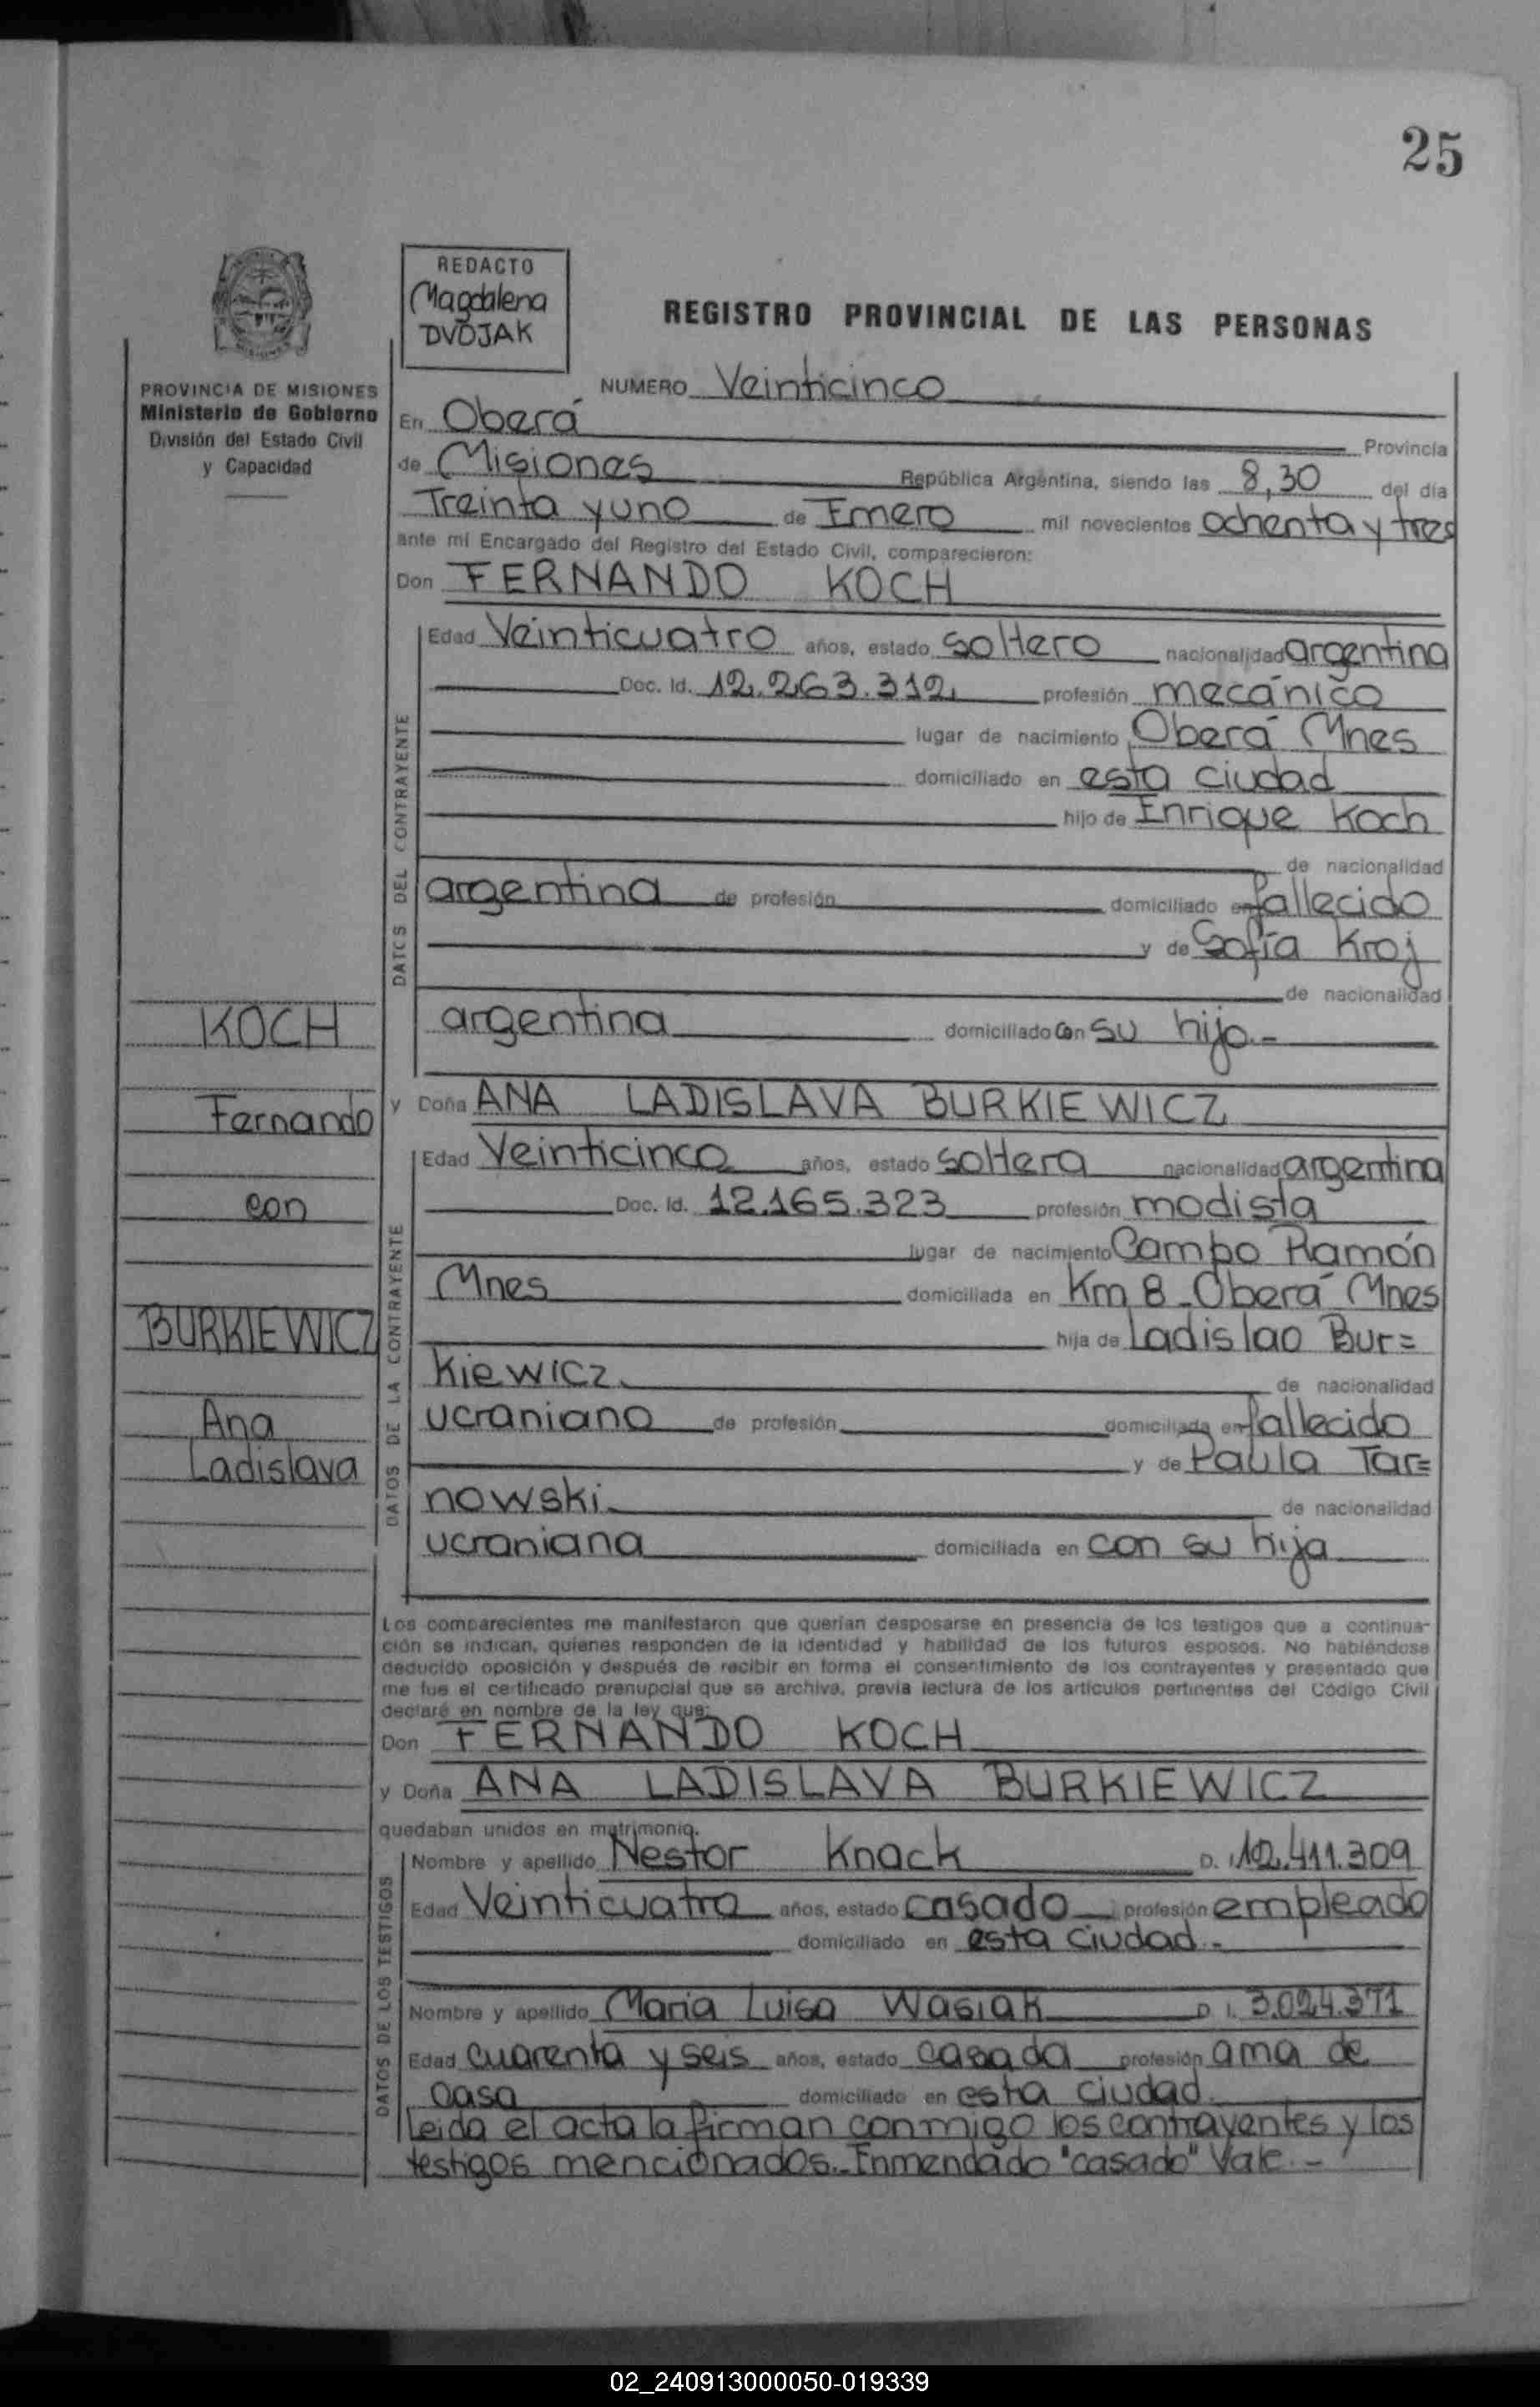 25
REDACTO
Magdalena
DVOJAK
REGISTRO PROVINCIAL DE LAS PERSONAS
PROVINCIA DE MISIONES
Ministerio de Gobierno
División del Estado Civil
y Capacidad
NUMERO Veinticinco
En Oberá Provincia
de Misiones República Argentina, siendo las 8,30 del día
Treinta y uno de Enero mil novecientos ochenta y tres
ante mí Encargado del Registro del Estado Civil, comparecieron:
Don FERNANDO KOCH
DATOS DEL CONTRAYENTE
Edad Veinticuatro años, estado soltero nacionalidad argentina
Doc. Id. 12.263.312 profesión mecánico
lugar de nacimiento Oberá Mnes
domiciliado en esta ciudad
hijo de Enrique Koch
de nacionalidad
argentina de profesión domiciliado en fallecido
y de Sofía Kroj
de nacionalidad
argentina domiciliado con su hijo.-
KOCH
Fernando
con
BURKIEWICZ
Ana
Ladislava
y Doña ANA LADISLAVA BURKIEWICZ
DATOS DE LA CONTRAYENTE
Edad Veinticinco años, estado soltera nacionalidad argentina
Doc. Id. 12.165.323 profesión modista
lugar de nacimiento Campo Ramón
Mnes domiciliada en Km 8 - Oberá Mnes
hija de Ladislao Bur=
kiewicz de nacionalidad
ucraniano de profesión domiciliada en fallecido
y de Paula Tar=
nowski de nacionalidad
ucraniana domiciliada en con su hija
Los comparecientes me manifestaron que querían desposarse en presencia de los testigos que a continua-
ción se indican, quienes responden de la identidad y habilidad de los futuros esposos. No habiéndose
deducido oposición y después de recibir en forma el consentimiento de los contrayentes y presentado que
me fue el certificado prenupcial que se archiva, previa lectura de los artículos pertinentes del Código Civil
declaré en nombre de la ley que:
Don FERNANDO KOCH
y Doña ANA LADISLAVA BURKIEWICZ
quedaban unidos en matrimonio.
DATOS DE LOS TESTIGOS
Nombre y apellido Nestor Knack D. I. 12.411.309
Edad Veinticuatro años, estado casado profesión empleado
domiciliado en esta ciudad.-
Nombre y apellido Maria Luisa Wasiak D. I. 3.024.371
Edad cuarenta y seis años, estado casada profesión ama de
casa domiciliado en esta ciudad.
Leida el acta la firman conmigo los contrayentes y los
testigos mencionados.- Enmendado "casado" Vale.-
02_240913000050-019339